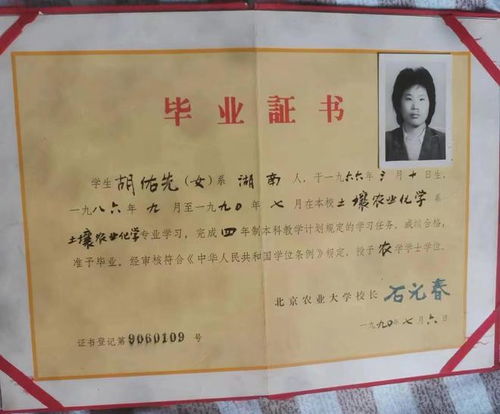 毕业証书
学生胡佑先(女)系湖南人,于一九六六年三月十日生,
一九八六年九月至一九九〇年七月在本校土壤农业化学系
土壤农业化学专业学习,完成四年制本科教学计划规定的学习任务,成绩合格,
准予毕业。经审核符合《中华人民共和国学位条例》规定,授予农学学士学位。
北京农业大学校长 石元春
一九九〇年七月六日
证书登记第9060109号